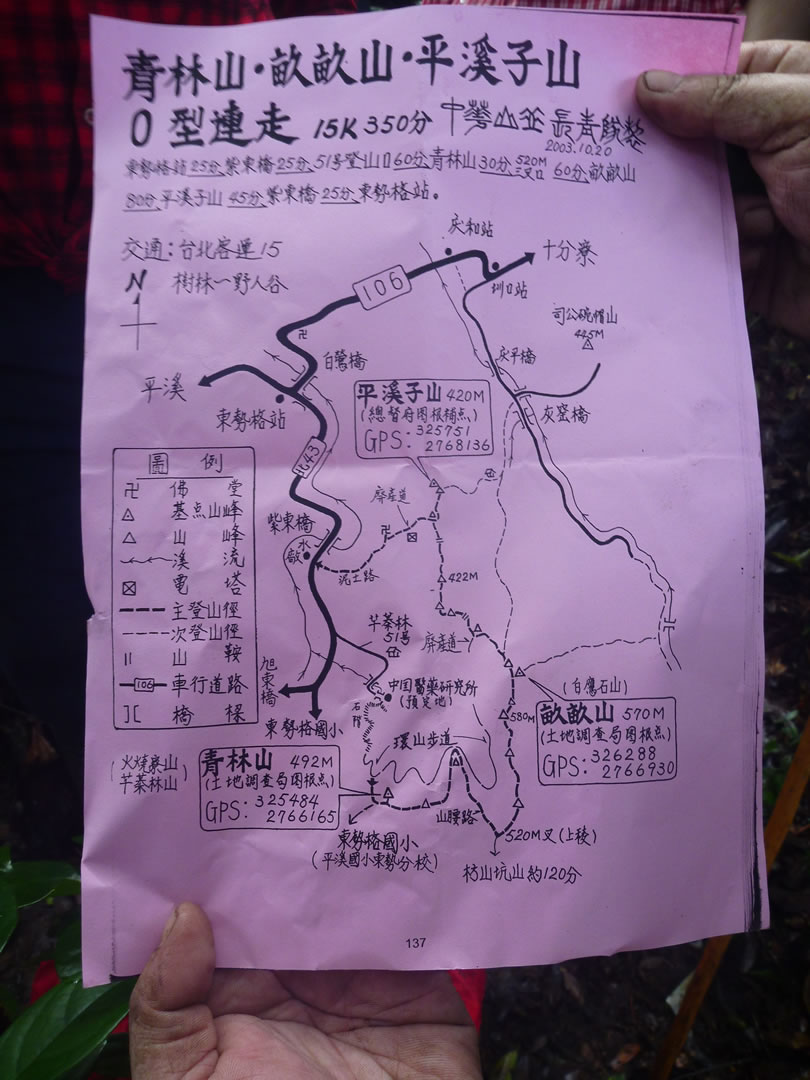 青林山·畝畝山·平溪子山
O型連走 15K 350分 中華山岳長青隊
2003.10.20
東勢格站25分紫東橋25分51号登山口60分青林山30分520M三叉口60分畝畝山
80分平溪子山45分紫東橋25分東勢格站。
交通:台北客運15
樹林一野人谷
N
106
庆和站
十分寮
圳口站
司公碗帽山
445M
白鶯橋
庆平橋
灰窑橋
平溪
東勢格站
平溪子山 420M
(總督府图根補点)
GPS: 325751
2768136
北43
圖例
卍 佛堂
基点山峰
山峰
溪流
電塔
主登山徑
次登山徑
山鞍
106 車行道路
橋樑
產道
紫東橋
水
泥土路
422M
芊蓁林
51号
產道
旭東橋
中国醫藥研究所
(預定地)
東勢格國小
(白鷹石山)
畝畝山 570M
(土地調查局图根点)
GPS: 326288
2766930
580M
環山步道
芊蓁林山
青林山 492M
(土地調查局图根点)
GPS: 325484
2766165
山腰路
520M叉(上稜)
東勢格國小
(平溪國小東勢分校)
枋山坑山約120分
137